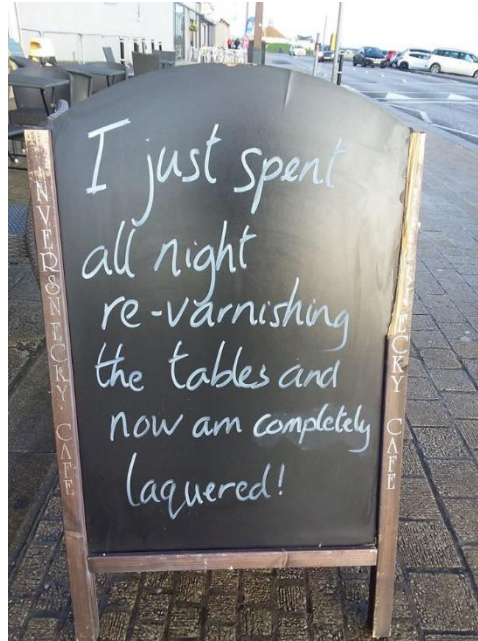 I just spent
all night
re-varnishing
the tables and
now am completely
laquered!
INVERSNECKY CAFE
ECKY CAFE